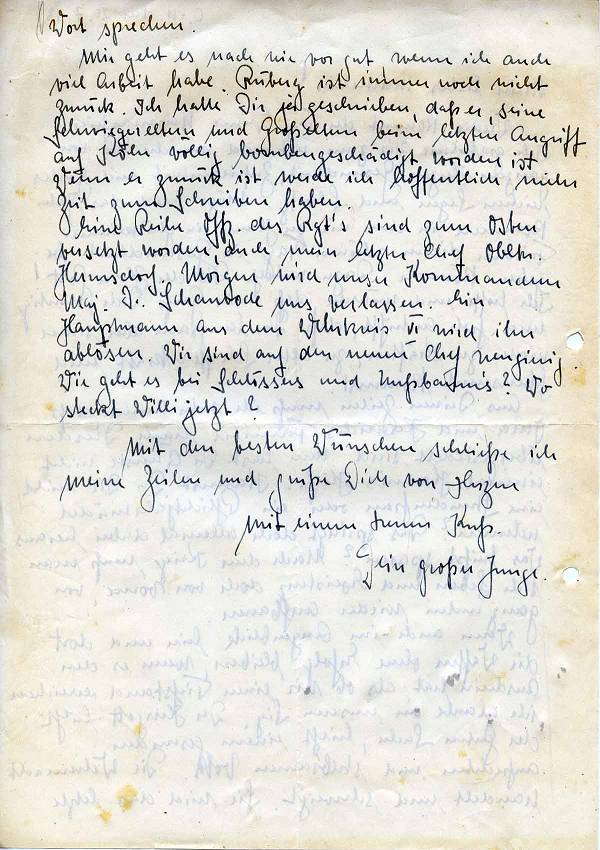 Wort sprechen.
Mir geht es nach wie vor gut wenn ich auch
viel Arbeit habe. ist immer noch nicht
zurück. Ich hatte Dir ja geschrieben, daß er, seine
Schwiegereltern und Großeltern beim letzten Angriff
auf Köln völlig bombengeschädigt worden ist
Wenn er zurück ist werde ich hoffentlich mehr
Zeit zum Schreiben haben.
Eine Reihe Offz. des Rgt's sind zum Osten
versetzt worden, auch mein letzter Chef Obltn.
Hermsdorf. Morgen wird unser Kommandeur
Maj. uns verlassen. Ein
Hauptmann aus dem Wehrkreis VI wird ihn
ablösen. Wir sind auf den neuen Chef neugierig.
Wie geht es bei Schlössers und Nußbaum's? Wo
steckt Willi jetzt?
Mit den besten Wünschen schließe ich
meine Zeilen und grüße Dich von Herzen
mit einem Kuß.
Dein großer Junge.